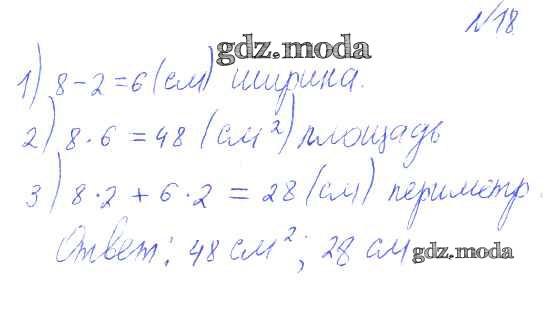 №18.
gdz.moda
1) 8-2=6(см) ширина.
2) 8·6 = 48 (см²) площадь
3) 8·2 + 6·2 = 28 (см) периметр.
Ответ: 48 см²; 28 см
gdz.moda